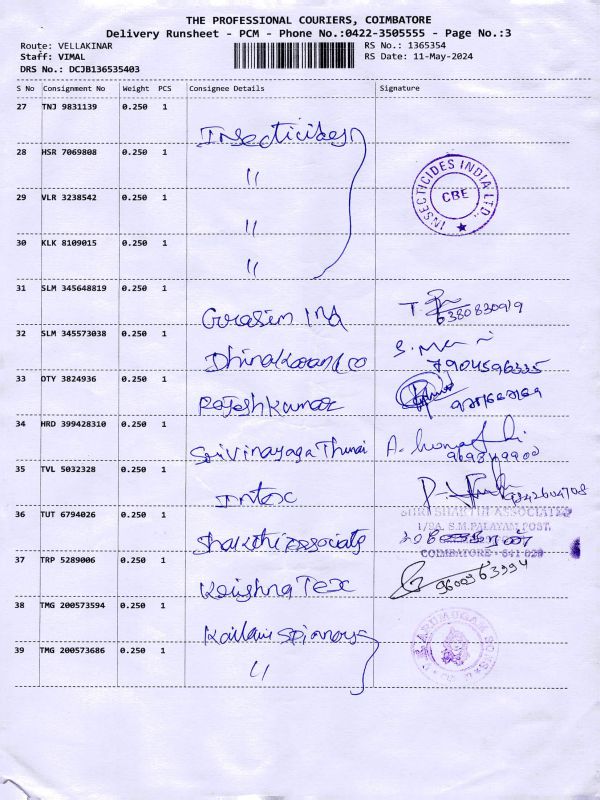 THE PROFESSIONAL COURIERS, COIMBATORE
Delivery Runsheet - PCM - Phone No.:0422-3505555 - Page No.:3
Route: VELLAKINAR RS No.: 1365354
Staff: VIMAL RS Date: 11-May-2024
DRS No.: DCJB136535403
S No Consignment No Weight PCS Consignee Details Signature
27 TNJ 9831139 0.250 1
Insecticides
28 HSR 7069808 0.250 1
"
29 VLR 3238542 0.250 1
"
30 KLK 8109015 0.250 1
"
INSECTICIDES INDIA LTD.
CBE
31 SLM 345648819 0.250 1
32 SLM 345573038 0.250 1
7904596335
33 OTY 3824936 0.250 1
Rajesh Kumar
34 HRD 399428310 0.250 1
Sri Vinayaga
35 TVL 5032328 0.250 1
Intex
36 TUT 6794026 0.250 1
SHRI SHAKTHI ASSOCIATES
1/9A, S.M.PALAYAM POST,
Shakthi Associats
COIMBATORE - 641 029
37 TRP 5289006 0.250 1
Krishna Tex
38 TMG 200573594 0.250 1
39 TMG 200573686 0.250 1
"